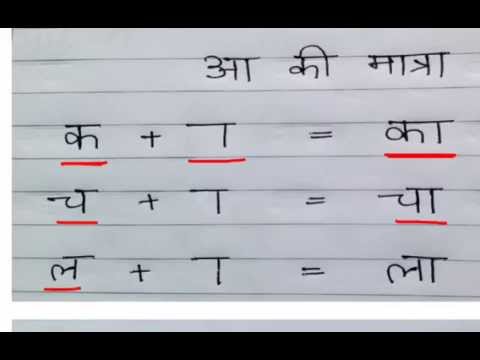 आ की मात्रा
क + ा = का
च + ा = चा
ल + ा = ला